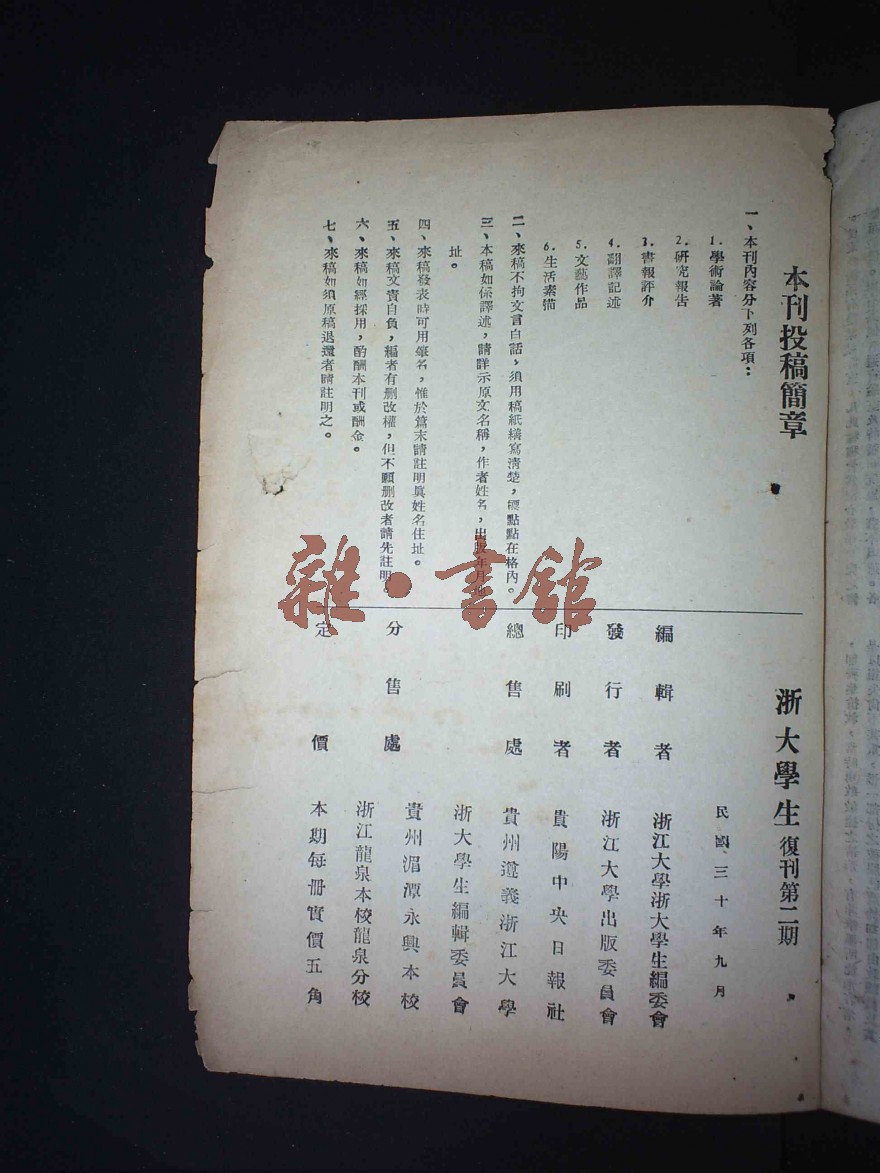 本刊投稿簡章
一、本刊內容分下列各項：
1.學術論著
2.研究報告
3.書報評介
4.翻譯記述
5.文藝作品
6.生活素描
二、來稿不拘文言白話，須用稿紙繕寫清楚，標點點在格內。
三、本稿如係譯述，請詳示原文名稱，作者姓名，出版年月地
址。
四、來稿發表時可用筆名，惟於篇末請註明眞姓名住址。
五、來稿文責自負，編者有删改權，但不願删改者請先註明。
六、來稿如經採用，酌酬本刊或酬金。
七、來稿如須原稿退還者請註明之。
浙大學生 復刊第二期
民國三十年九月
編輯者 浙江大學浙大學生編委會
發行者 浙江大學出版委員會
印刷者 貴陽中央日報社
總售處 貴州遵義浙江大學
浙大學生編輯委員會
分售處 貴州湄潭永興本校
浙江龍泉本校龍泉分校
定價 本期每册實價五角
雜·書館